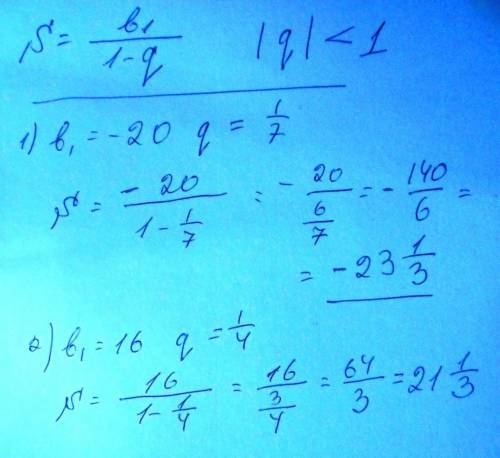 S = b1/(1-q) |q| < 1
1) b₁ = -20 q = 1/7
S = -20/(1 - 1/7) = - 20/(6/7) = - 140/6 =
= -23 1/3
2) b₁ = 16 q = 1/4
S = 16/(1 - 1/4) = 16/(3/4) = 64/3 = 21 1/3